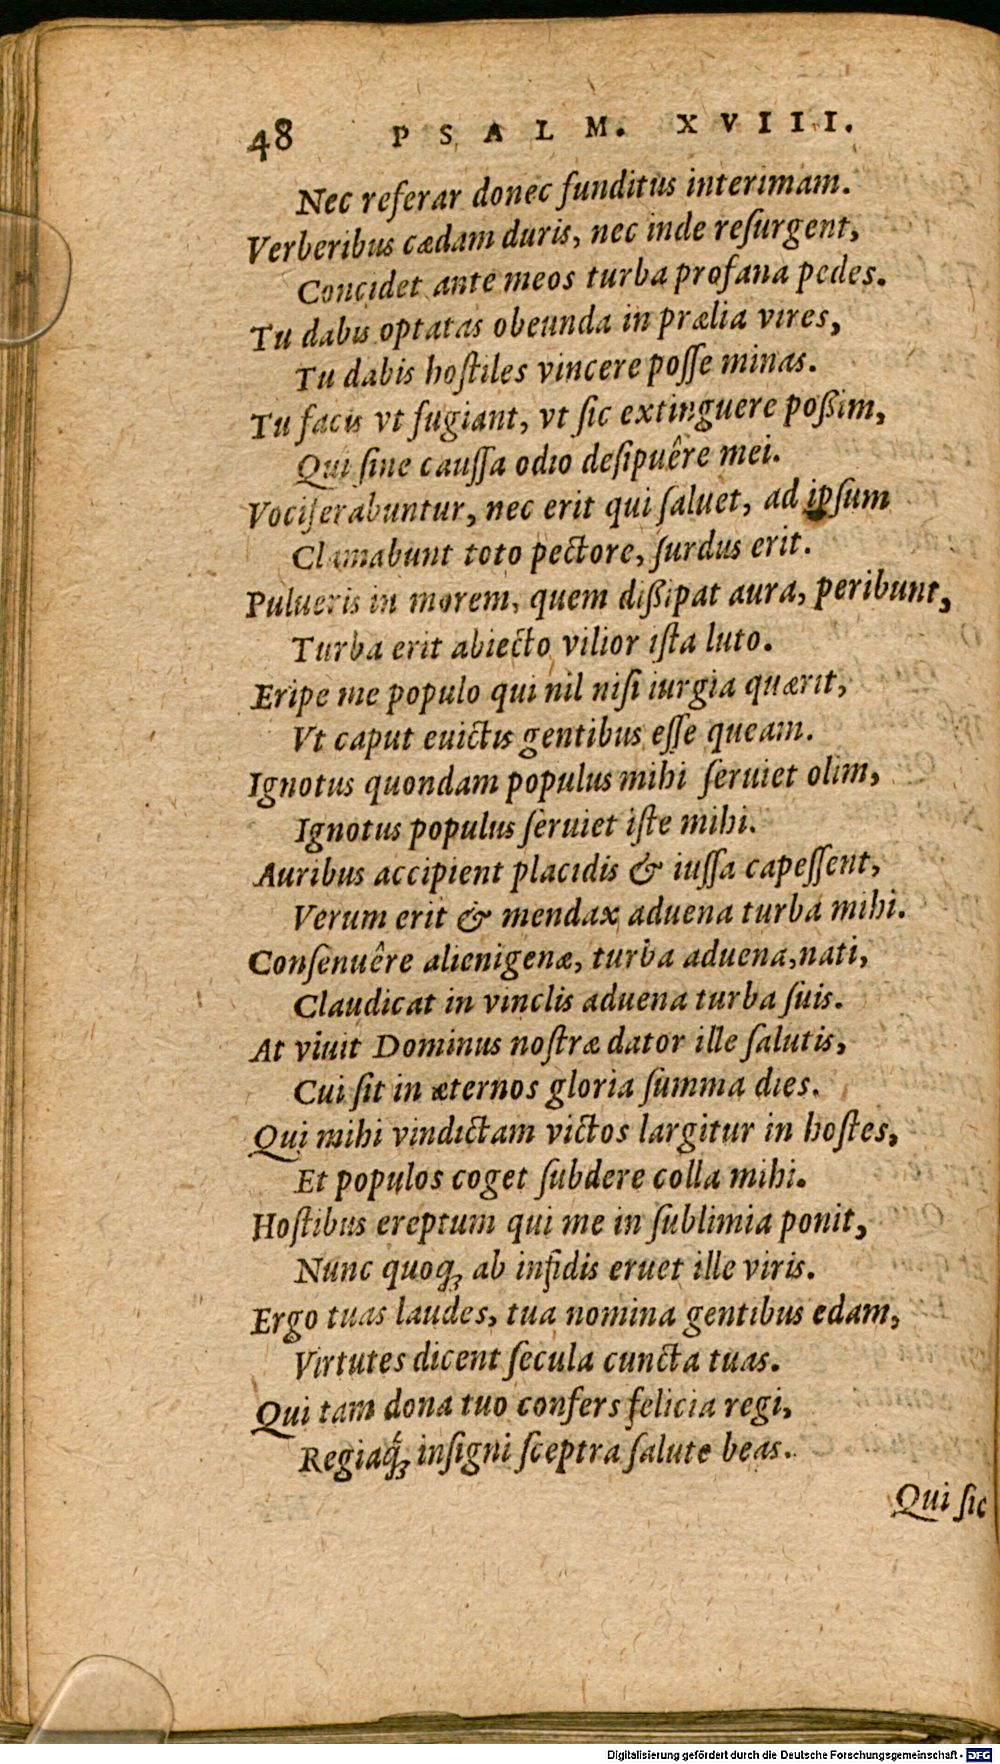 48 PSALM. XVIII.
Nec referar donec funditus interimam.
Verberibus cædam duris, nec inde reſurgent,
Concidet ante meos turba profana pedes.
Tu dabis optatas obeunda in prælia vires,
Tu dabis hoſtiles vincere poſſe minas.
Tu facis vt fugiant, vt ſic extinguere poßim,
Qui ſine cauſſa odio deſipuêre mei.
Vociferabuntur, nec erit qui ſaluet, ad ipſum
Clamabunt toto pectore, ſurdus erit.
Pulueris in morem, quem dißipat aura, peribunt,
Turba erit abiecto vilior iſta luto.
Eripe me populo qui nil niſi iurgia quærit,
Vt caput euictis gentibus eſſe queam.
Ignotus quondam populus mihi ſeruiet olim,
Ignotus populus ſeruiet iſte mihi.
Auribus accipient placidis & iuſſa capeſſent,
Verum erit & mendax aduena turba mihi.
Conſenuêre alienigenæ, turba aduena, nati,
Claudicat in vinclis aduena turba ſuis.
At viuit Dominus noſtræ dator ille ſalutis,
Cui ſit in æternos gloria ſumma dies.
Qui mihi vindictam victos largitur in hoſtes,
Et populos coget ſubdere colla mihi.
Hoſtibus ereptum qui me in ſublimia ponit,
Nunc quoq; ab infidis eruet ille viris.
Ergo tuas laudes, tua nomina gentibus edam,
Virtutes dicent ſecula cuncta tuas.
Qui tam dona tuo confers felicia regi,
Regiaq́; inſigni ſceptra ſalute beas.
Qui ſic
Digitalisierung gefördert durch die Deutsche Forschungsgemeinschaft - DFG